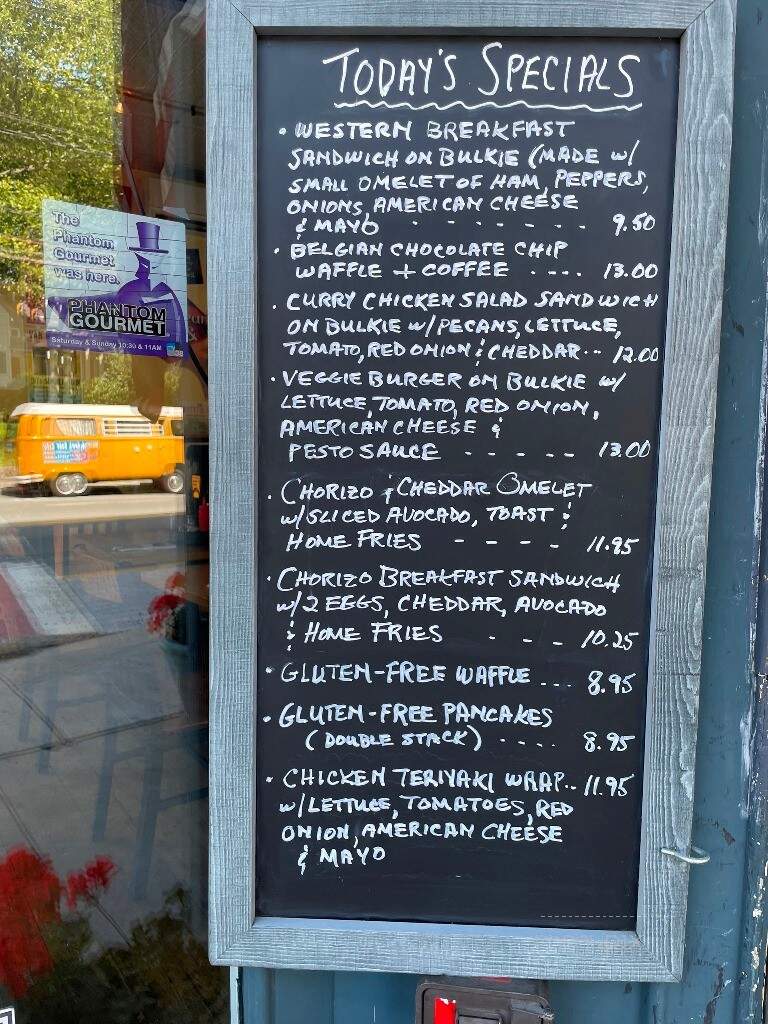 TODAY'S SPECIALS
• WESTERN BREAKFAST
SANDWICH ON BULKIE (MADE W/
SMALL OMELET OF HAM, PEPPERS,
ONIONS, AMERICAN CHEESE
& MAYO - - - - - - - 9.50
• BELGIAN CHOCOLATE CHIP
WAFFLE + COFFEE .... 13.00
• CURRY CHICKEN SALAD SANDWICH
ON BULKIE W/PECANS, LETTUCE,
TOMATO, RED ONION & CHEDDAR .. 12.00
• VEGGIE BURGER ON BULKIE W/
LETTUCE, TOMATO, RED ONION,
AMERICAN CHEESE &
PESTO SAUCE - - - - - 13.00
• CHORIZO & CHEDDAR OMELET
W/SLICED AVOCADO, TOAST &
HOME FRIES - - - - 11.95
• CHORIZO BREAKFAST SANDWICH
W/2 EGGS, CHEDDAR, AVOCADO
& HOME FRIES - - - 10.25
• GLUTEN-FREE WAFFLE ... 8.95
• GLUTEN-FREE PANCAKES
(DOUBLE STACK) .... 8.95
• CHICKEN TERIYAKI WRAP .. 11.95
W/LETTUCE, TOMATOES, RED
ONION, AMERICAN CHEESE
& MAYO
The
Phantom
Gourmet
was here.
PHANTOM
GOURMET
Saturday & Sunday 10:30 & 11AM